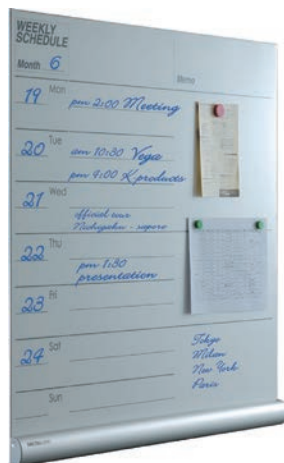 WEEKLY
SCHEDULE
Month 6
Memo
19 Mon
pm 2:00 Meeting
20 Tue
am 10:30 Vega
pm 4:00 K products
21 Wed
official
22 Thu
pm 1:30
presentation
23 Fri
24 Sat
Sun
Tokyo
Milan
New York
Paris